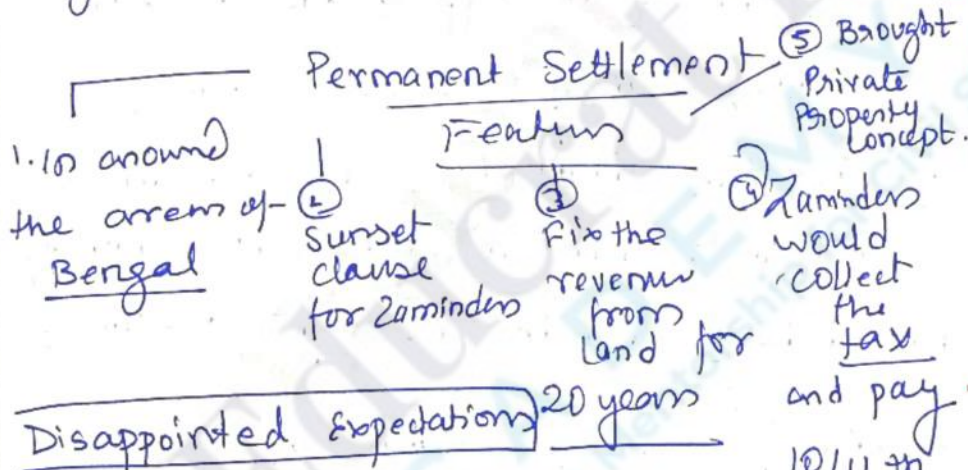 Permanent Settlement
Features
1. In around
the areas of
Bengal
②
Sunset
clause
for Zaminders
③
Fix the
revenue
from
land for
20 years
④ Zaminders
would
collect
the
tax
and pay
10/11 th
⑤ Brought
Private
Property
Concept.
Disappointed Expectations